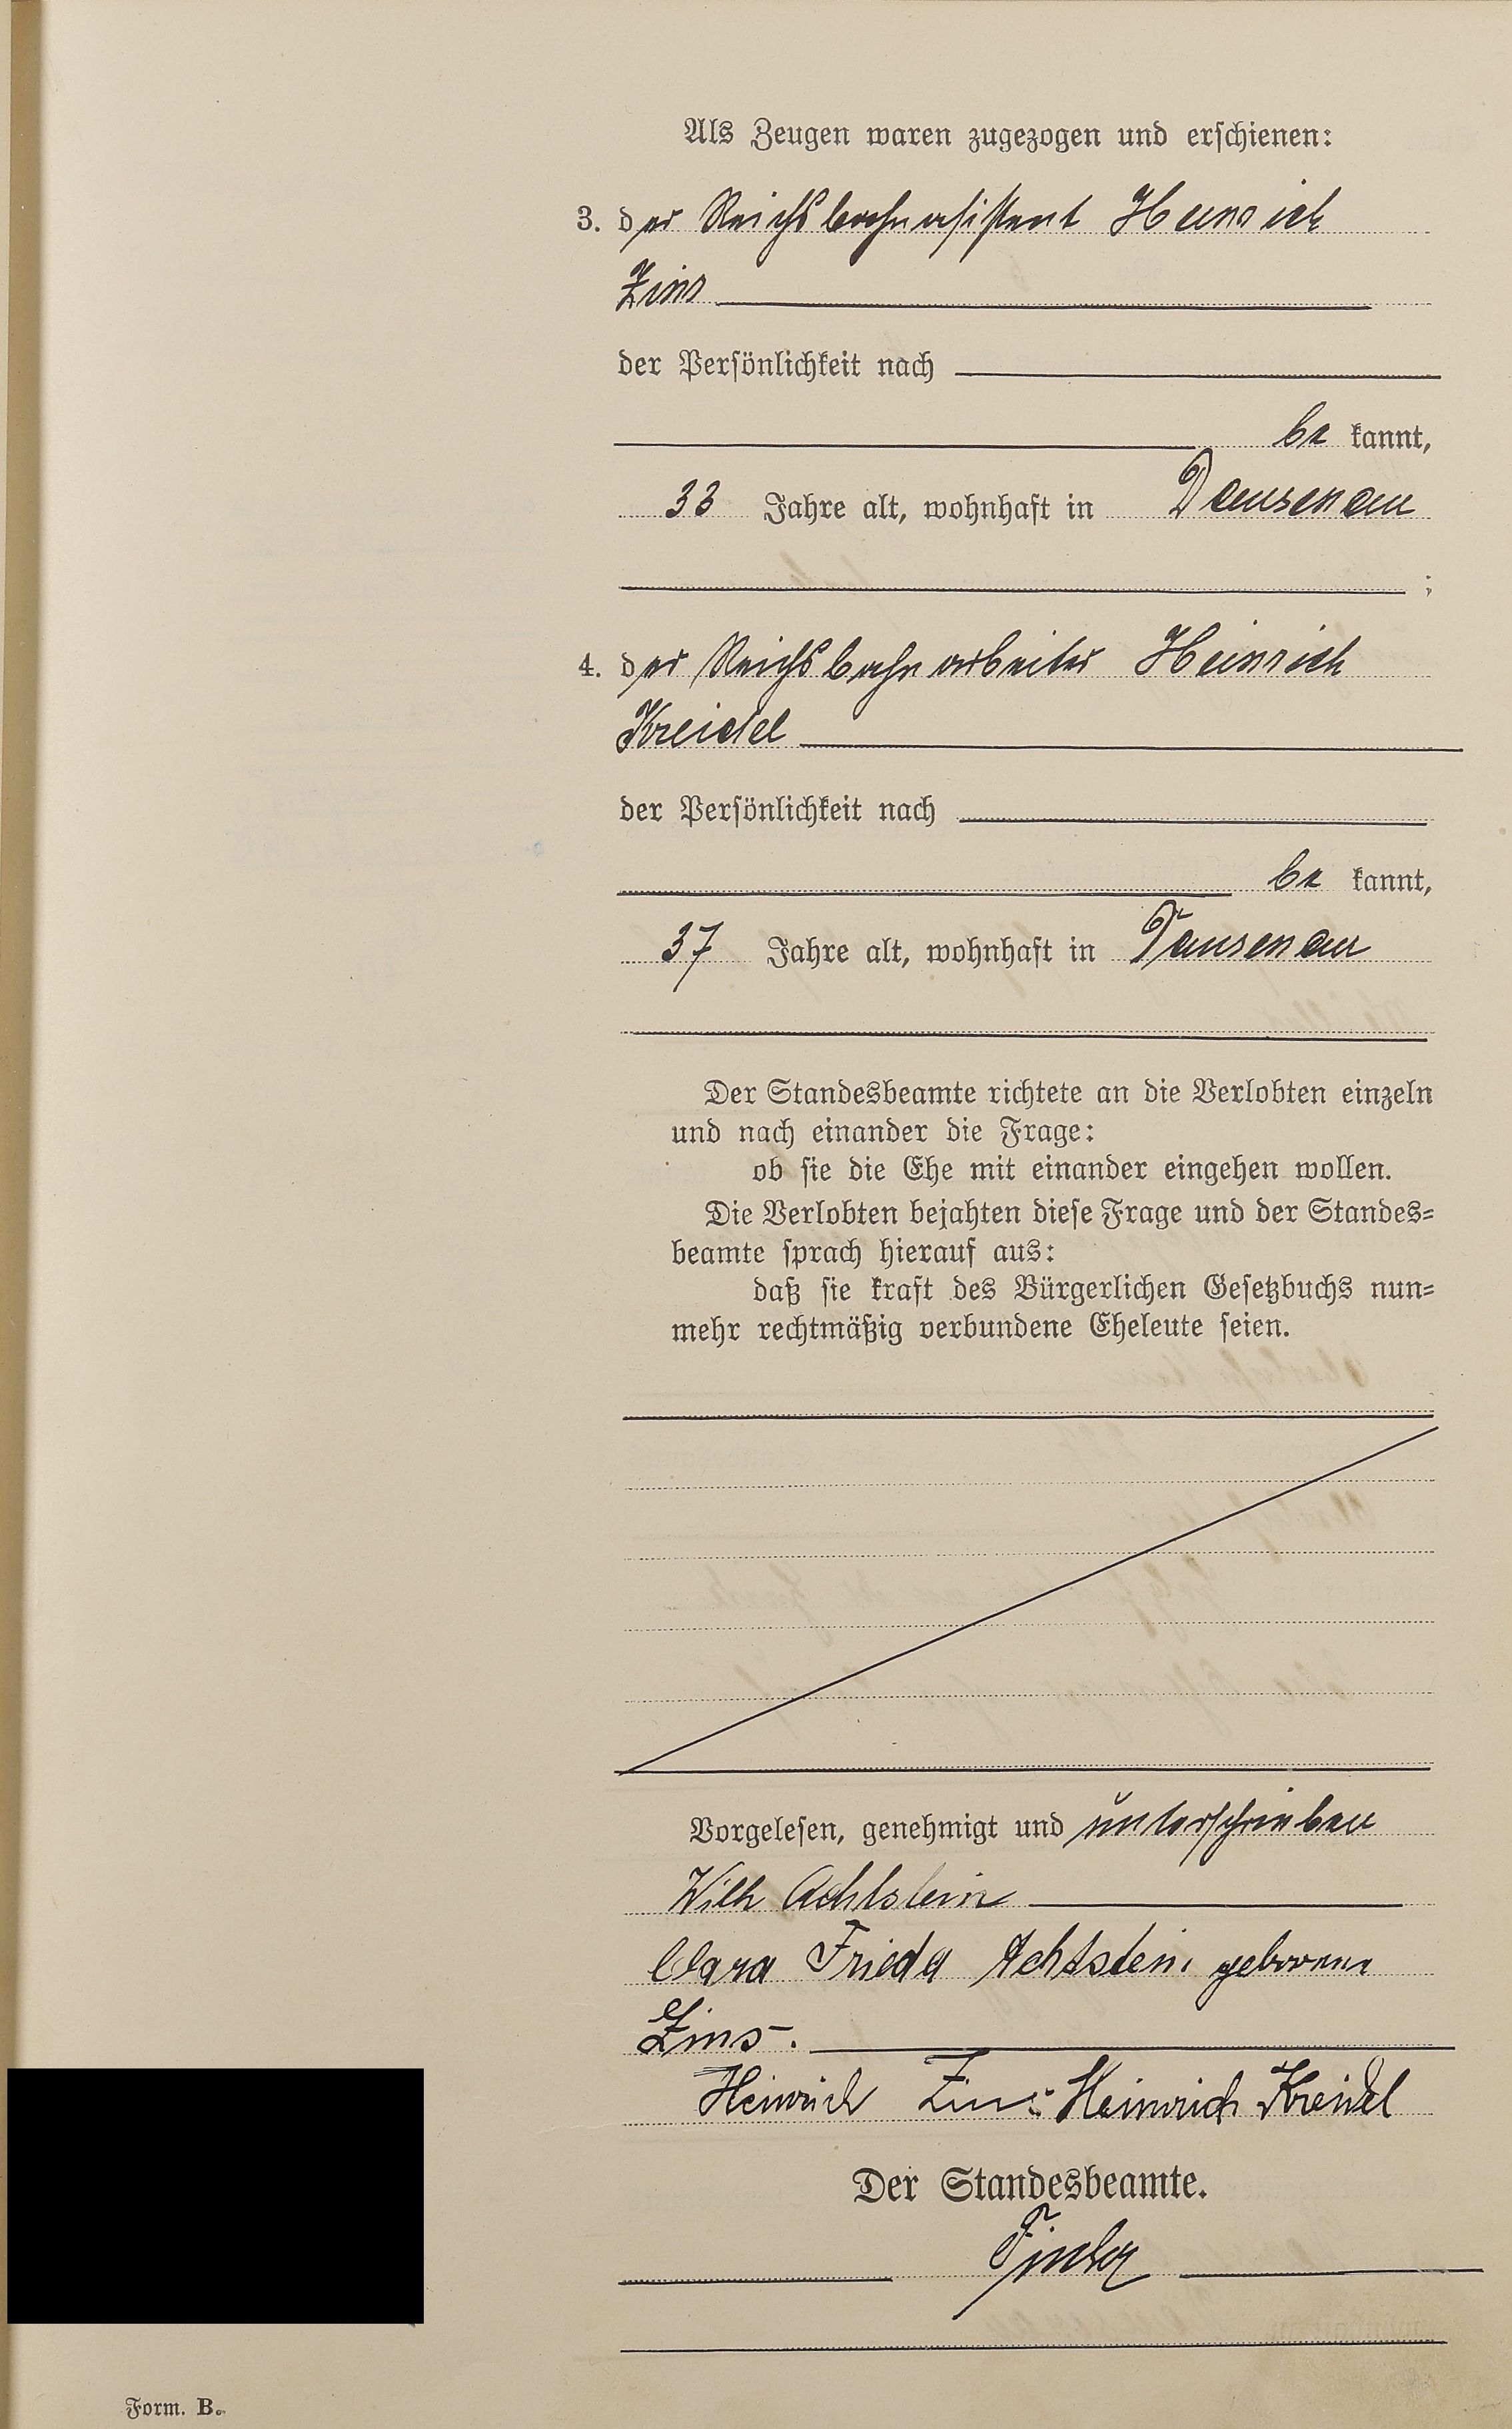 Als Zeugen waren zugezogen und erschienen:
3. der Reichsbahnassistent Heinrich
Zins
der Persönlichkeit nach
be kannt,
33 Jahre alt, wohnhaft in Dausenau
;
4. der Reichsbahnarbeiter Heinrich
Kreidel
der Persönlichkeit nach
be kannt,
37 Jahre alt, wohnhaft in Dausenau
Der Standesbeamte richtete an die Verlobten einzeln
und nach einander die Frage:
ob sie die Ehe mit einander eingehen wollen.
Die Verlobten bejahten diese Frage und der Standes-
beamte sprach hierauf aus:
daß sie kraft des Bürgerlichen Gesetzbuchs nun-
mehr rechtmäßig verbundene Eheleute seien.
Vorgelesen, genehmigt und unterschrieben
Wilh Achtstein
Clara Frieda Achtstein geborene
Zins.
Heinrich Zins Heinrich Kreidel
Der Standesbeamte.
Form. B.